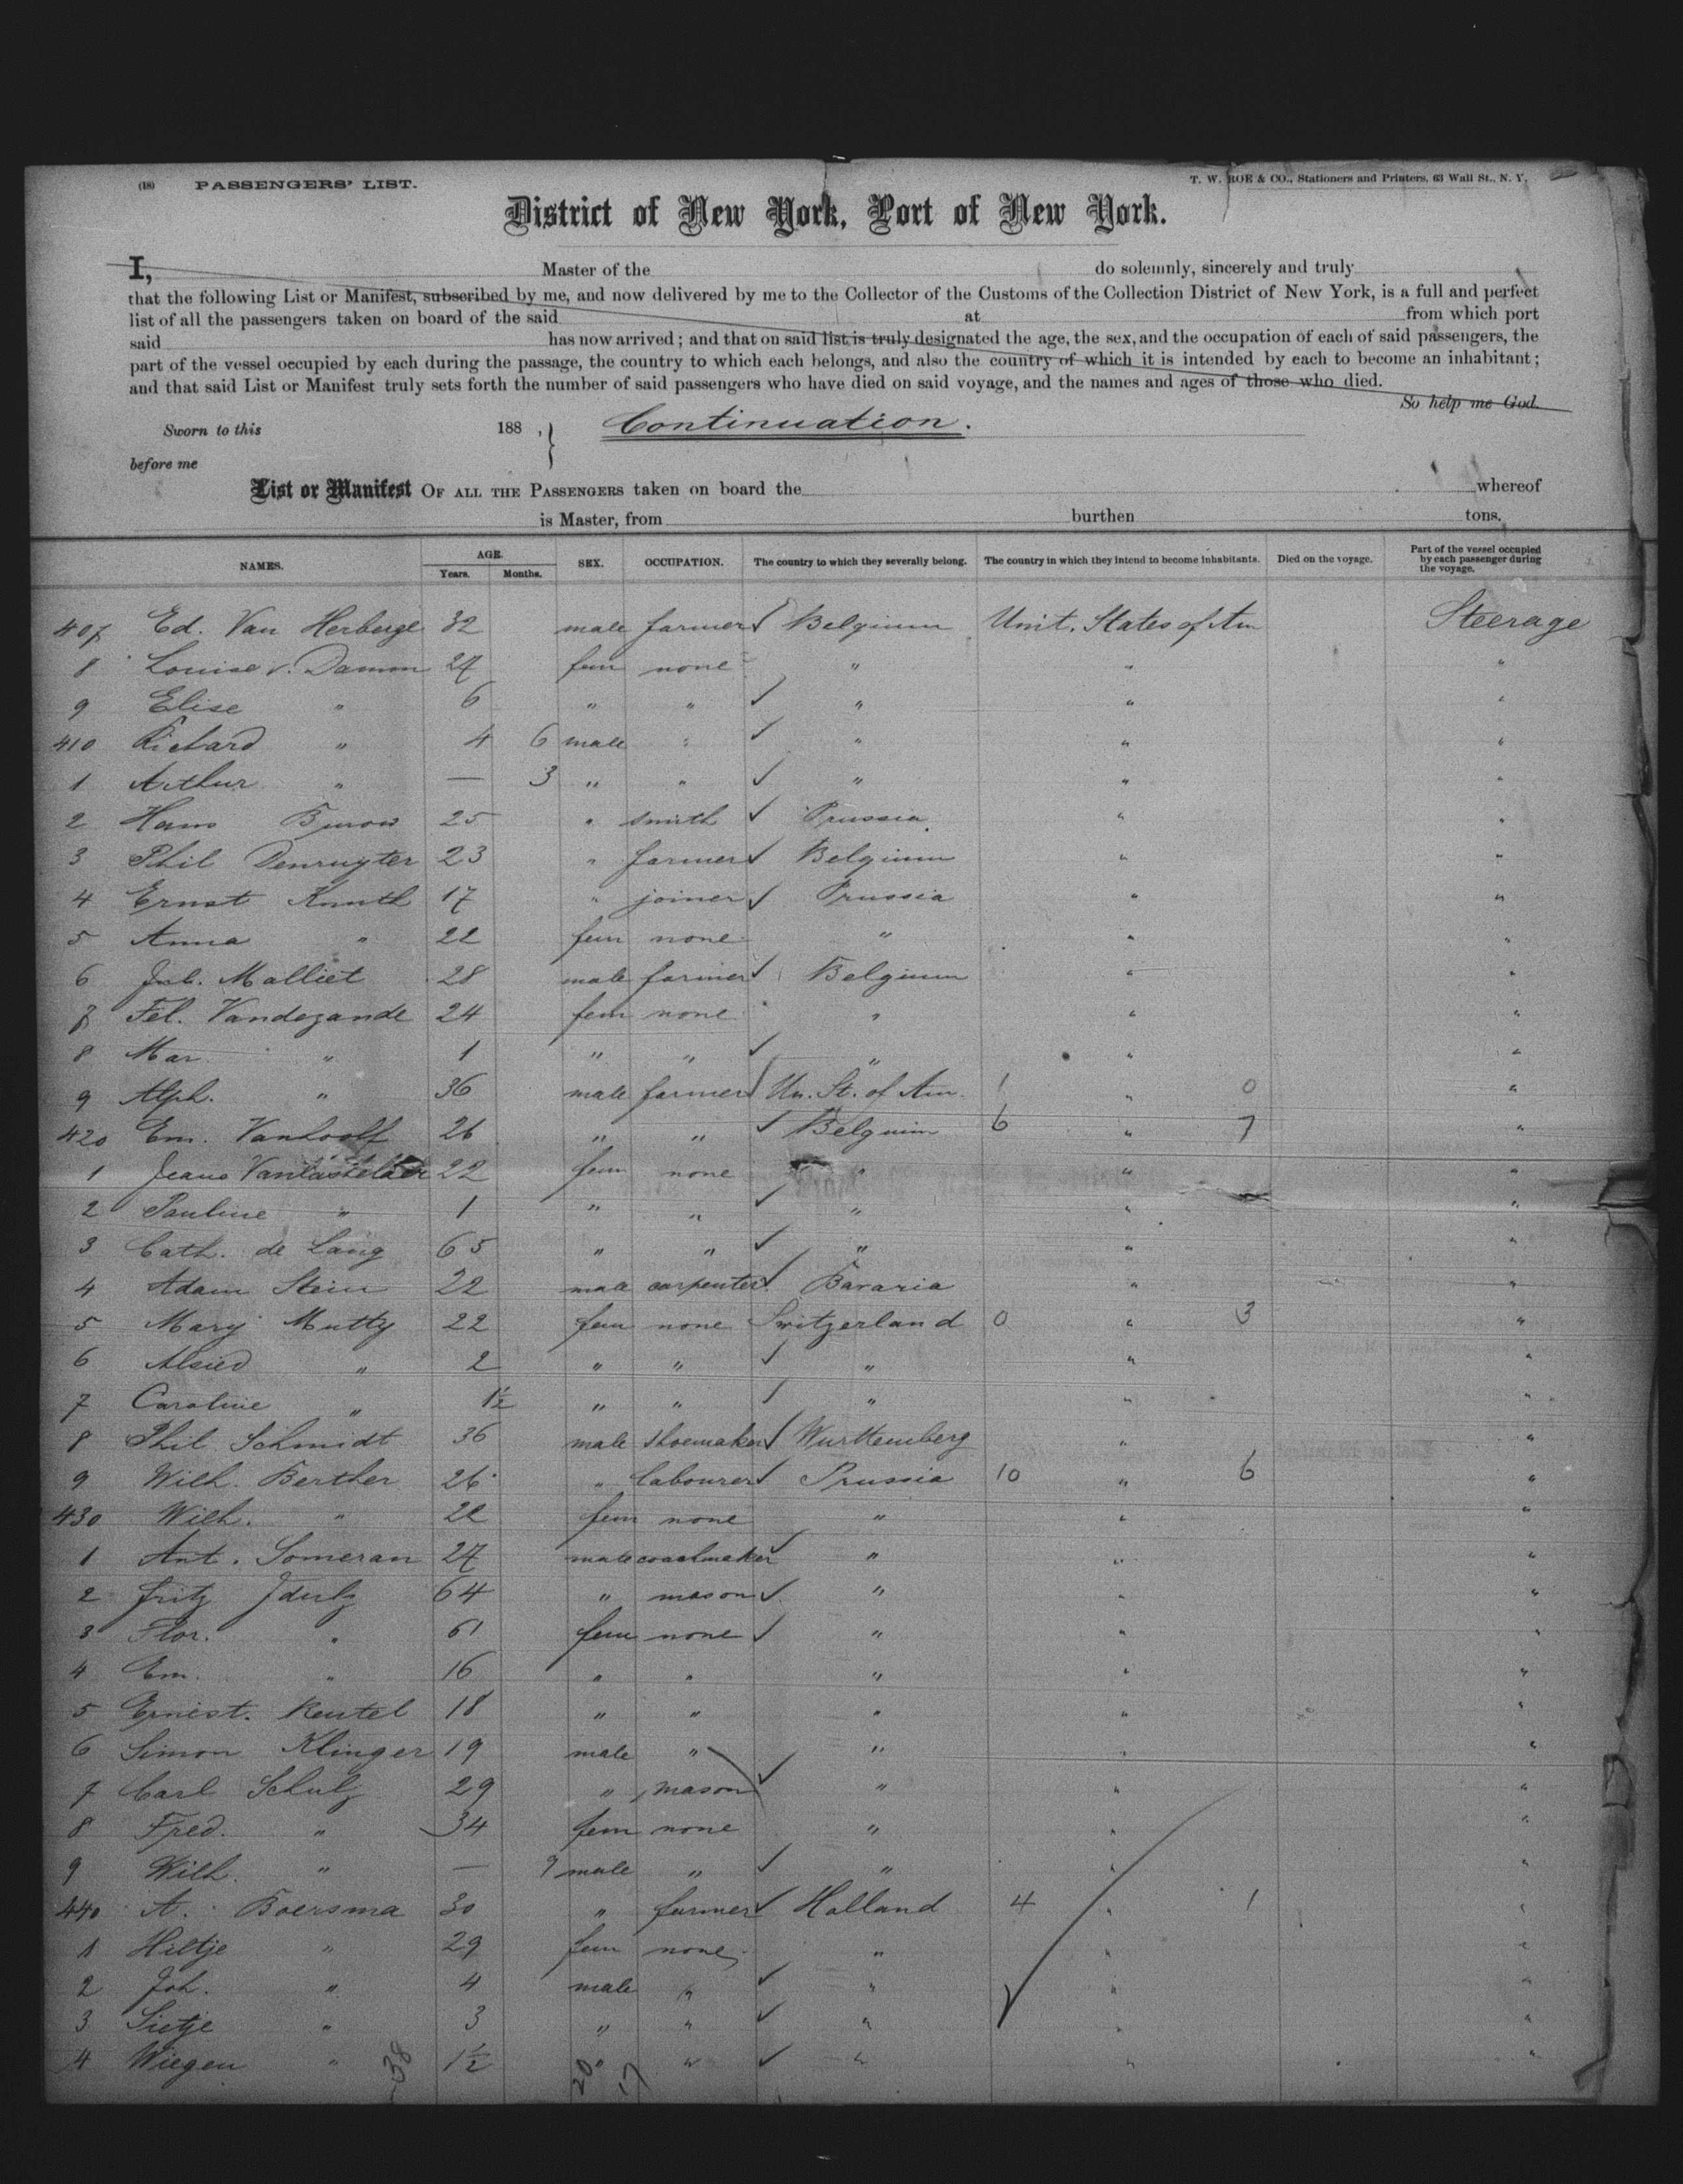 (18) PASSENGERS' LIST. T. W. ROE & CO., Stationers and Printers, 63 Wall St., N. Y.
District of New York, Port of New York.
I, Master of the do solemnly, sincerely and truly
that the following List or Manifest, subscribed by me, and now delivered by me to the Collector of the Customs of the Collection District of New York, is a full and perfect
list of all the passengers taken on board of the said at from which port
said has now arrived; and that on said list is truly designated the age, the sex, and the occupation of each of said passengers, the
part of the vessel occupied by each during the passage, the country to which each belongs, and also the country of which it is intended by each to become an inhabitant;
and that said List or Manifest truly sets forth the number of said passengers who have died on said voyage, and the names and ages of those who died.
So help me God.
Sworn to this 188 , } Continuation.
before me
List or Manifest OF ALL THE PASSENGERS taken on board the whereof
is Master, from burthen tons.
NAMES. AGE. Years. Months. SEX. OCCUPATION. The country to which they severally belong. The country in which they intend to become inhabitants. Died on the voyage. Part of the vessel occupied by each passenger during the voyage.
407 Ed. Van Herberge 32 male farmer ✓ Belgium Unit. States of Am Steerage
8 Louise v. Damm 27 fem none " " "
9 Elise " 6 " " ✓ " " "
410 Richard " 4 6 male " ✓ " " "
1 Arthur " — 3 " " ✓ " " "
2 Hans Burow 25 " smith ✓ Prussia " "
3 Phil Denruyter 23 " farmer ✓ Belgium " "
4 Ernst Knuth 17 " joiner ✓ Prussia " "
5 Anna " 22 fem none " " "
6 Jul. Malliet 28 male farmer ✓ Belgium " "
7 Fel. Vandezande 24 fem none " " "
8 Mar. " 1 " " ✓ " " "
9 Alph. " 36 male farmer Un. St. of Am. 1 " 0 "
420 Em. Vanhoolf 26 " " ✓ Belguim 6 " 7 "
1 22 fem none " " "
2 Pauline " 1 " " ✓ " " "
3 Cath. de Lang 65 " " ✓ " " "
4 Adam Stein 22 male carpenter ✓ Bavaria " "
5 Mary Mutty 22 fem none Switzerland 0 " 3 "
6 " 2 " " ✓ " " "
7 Caroline " 1½ " " ✓ " " "
8 Phil Schmidt 36 male shoemaker ✓ Wurttemberg " "
9 Wilh. Berther 26 " labourer ✓ Prussia 10 " 6 "
430 Wilh. " 22 fem none " " "
1 Ant. Someran 27 male coachmaker ✓ " " "
2 Fritz 64 " mason ✓ " " "
3 Flor. " 61 fem none ✓ " " "
4 Em. " 16 " " " " "
5 Ernest. Reutel 18 " " " " "
6 Simon Klinger 19 male " ✓ " " "
7 Carl Schulz 29 " mason " " "
8 Fred. " 34 fem none " " "
9 Wilh. " — 9 male " ✓ " " "
440 A. Boersma 30 " farmer ✓ Holland 4 " 1 "
1 Hiltje " 29 fem none " " "
2 Joh. " 4 male " ✓ " " "
3 Sietje " 3 " " ✓ " " "
4 Wiegen " 1½ " " ✓ " " "
38 20 17